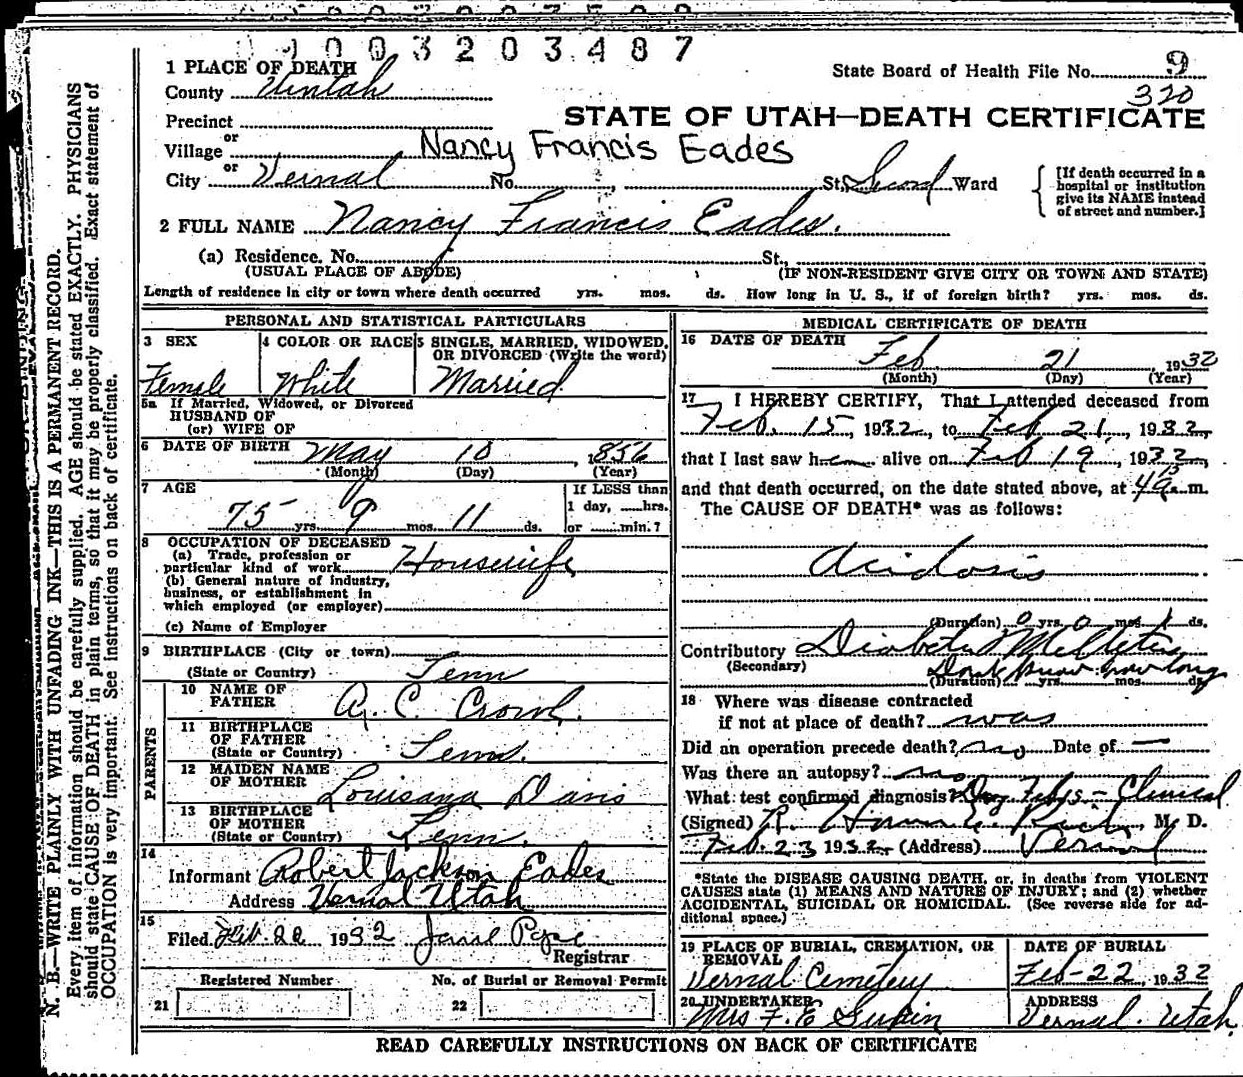 0 0 0 3 2 0 3 4 8 7
1 PLACE OF DEATH
County Uintah
State Board of Health File No. 9
320
Precinct
STATE OF UTAH—DEATH CERTIFICATE
or
Village
Nancy Francis Eades
or
City Vernal No. St. Second Ward
[If death occurred in a
hospital or institution
give its NAME instead
of street and number.]
2 FULL NAME Nancy Francis Eades.
(a) Residence. No. St.,
(USUAL PLACE OF ABODE) (IF NON-RESIDENT GIVE CITY OR TOWN AND STATE)
Length of residence in city or town where death occurred yrs. mos. ds. How long in U. S., if of foreign birth? yrs. mos. ds.
PERSONAL AND STATISTICAL PARTICULARS
3 SEX
Female
4 COLOR OR RACE
White
5 SINGLE, MARRIED, WIDOWED,
OR DIVORCED (Write the word)
Married
5a If Married, Widowed, or Divorced
HUSBAND OF
(or) WIFE OF
6 DATE OF BIRTH May 10, 1856
(Month) (Day) (Year)
7 AGE
75 yrs. 9 mos. 11 ds.
If LESS than
1 day, hrs.
or min.?
8 OCCUPATION OF DECEASED
(a) Trade, profession or
particular kind of work Housewife
(b) General nature of industry,
business, or establishment in
which employed (or employer)
(c) Name of Employer
9 BIRTHPLACE (City or town)
(State or Country) Tenn
PARENTS
10 NAME OF
FATHER A. C.
11 BIRTHPLACE
OF FATHER
(State or Country) Tenn.
12 MAIDEN NAME
OF MOTHER Louisana Davis
13 BIRTHPLACE
OF MOTHER
(State or Country) Tenn.
14
Informant Robert Jackson Eades
Address Vernal Utah
15
Filed Feb. 22 1932
Registrar
Registered Number
21
No. of Burial or Removal Permit
22
MEDICAL CERTIFICATE OF DEATH
16 DATE OF DEATH
Feb 21 1932
(Month) (Day) (Year)
17 I HEREBY CERTIFY, That I attended deceased from
Feb. 15, 1932, to Feb 21, 1932,
that I last saw her alive on Feb 19, 1932,
and that death occurred, on the date stated above, at a. m.
The CAUSE OF DEATH* was as follows:
Acidosis
(Duration) 0 yrs. 0 mos. ds.
Contributory Diabetes Mellitus
(Secondary) Dont know how long
(Duration) yrs. mos. ds.
18 Where was disease contracted
if not at place of death? was
Did an operation precede death? no Date of —
Was there an autopsy? no
What test confirmed diagnosis? - Clinical
(Signed) R. Rich, M. D.
Feb. 23 1932 (Address) Vernal
*State the DISEASE CAUSING DEATH, or, in deaths from VIOLENT
CAUSES state (1) MEANS AND NATURE OF INJURY; and (2) whether
ACCIDENTAL, SUICIDAL OR HOMICIDAL. (See reverse side for ad-
ditional space.)
19 PLACE OF BURIAL, CREMATION, OR
REMOVAL
Vernal Cemetery
DATE OF BURIAL
Feb-22, 1932
20 UNDERTAKER
Mrs F. E
ADDRESS
Vernal. Utah
READ CAREFULLY INSTRUCTIONS ON BACK OF CERTIFICATE
N. B.—WRITE PLAINLY WITH UNFADING INK—THIS IS A PERMANENT RECORD.
Every item of information should be carefully supplied. AGE should be stated EXACTLY. PHYSICIANS
should state CAUSE OF DEATH in plain terms, so that it may be properly classified. Exact statement of
OCCUPATION is very important. See instructions on back of certificate.